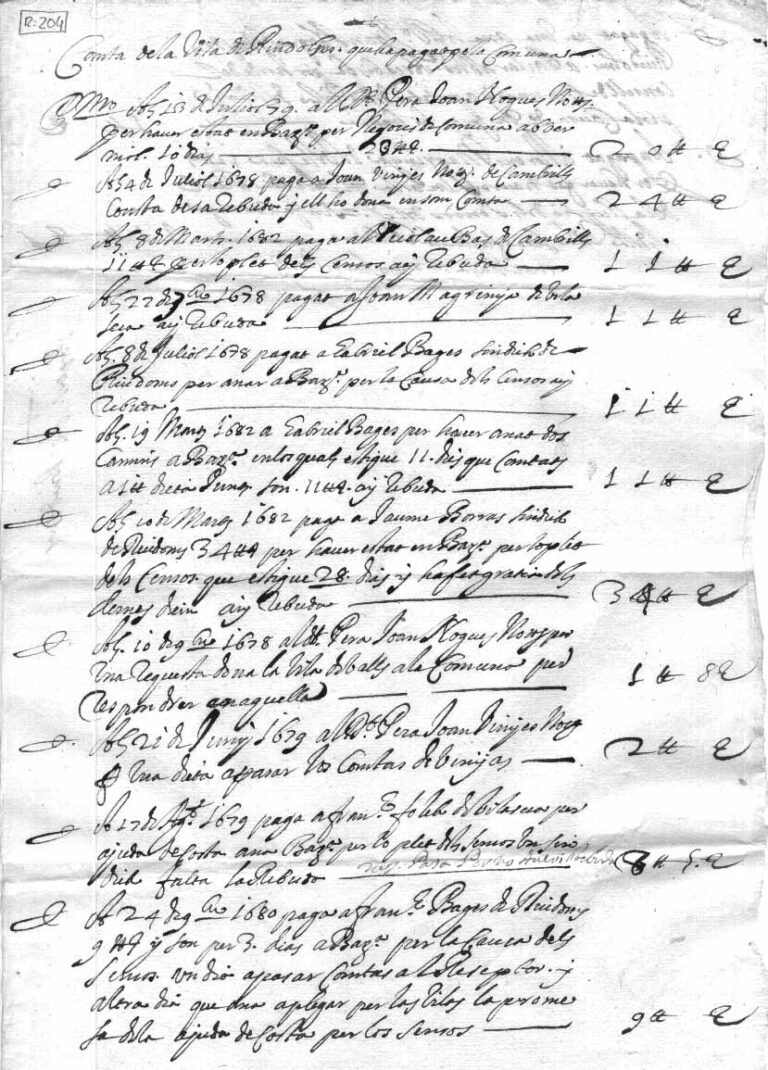 R-204
Conta de la Vila de Riudoms que ha pagat per la Comuna
Pmo Als 13 de Juliol 79. al Dt. Pera Joan Nogues Notj.
per haver estat en Barna per Negocis de Comuna
10 dias 20 ₶ 20 ₶ ₰
Als 4 de Juliol 1678 paga a Joan Vinyes Notj. de Cambrils
Consta de sa Rebuda y ell ho dona en son Conta 24 ₶ ₰
Als 8 de Mars 1682 paga al Nicolau Bas de Cambrills
11 ₶ ₰ per lo plet dels Censos aÿ Rebuda 11 ₶ ₰
Als 22 de 1678 pagat a Joan Magrinya de Vila
seca aÿ Rebuda 11 ₶ ₰
Als 8 de Juliol 1678 pagat a Gabriel Bages Sindich de
Riudoms per anar a Barna per la Causa dels Censos aÿ
Rebuda 11 ₶ ₰
Als 19 Mars 1682 a Gabriel Bages per haver anat dos
Camins a Barna en los quals estigue 11 dies que Contats
a 1 ₶ dieta son 11 ₶ ₰ aÿ Rebuda 11 ₶ ₰
Als 10 de Mars 1682 paga a Jaume Borras Sindich
de Riudoms 34 ₶ ₰ per haver estat en Barna per lo plet
dels Censos que estigue 28 dias y ha fet gratia dels
demes aÿ Rebuda 34 ₶ ₰
Als 10 de 9bre 1678 al dt. Pera Joan Nogues Notj per
Una Requesta dona la Vila de Valls a la Comuna per
respondrer en aquella 1 ₶ 8 ₰
Als 21 de Juny 1679 al Dt. Pera Joan Vinyes Notj
p Una dieta a pasar los Contas de Vinyas 2 ₶ ₰
A 17 de Agt. 1679 paga a Fran. de Vilaseca per
ajuda de Costa ana Barna per lo plet dels Sensos
falta la Rebuda 8 ₶ 5 ₰
A 24 de 9bre 1680 paga a Fran. Bages de Riudoms
9 ₶ ₰ y son per 3 dias a Barna per la Causa dels
Sensos. Un dia a pasar Contas al Reseptor. y
altra dia que ana a plegar per las Vilas la prome
sa de la ajuda de Costa per los Sensos 9 ₶ ₰